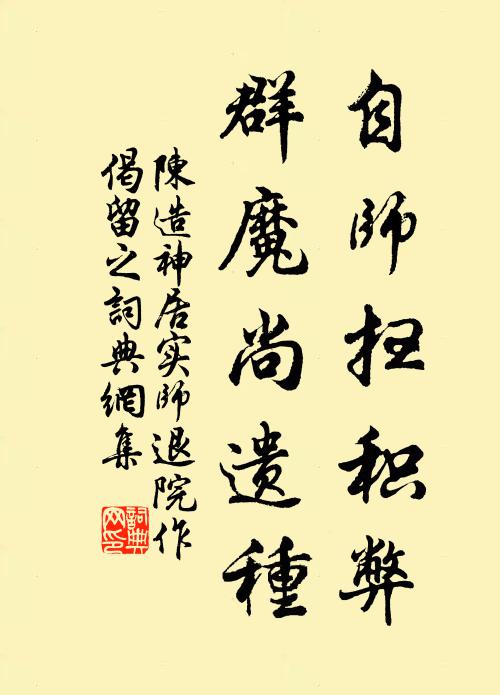 自师扫积弊
群魔尚遗種
陳造神居实师退院作
偈留之詞典網集
詞典网印